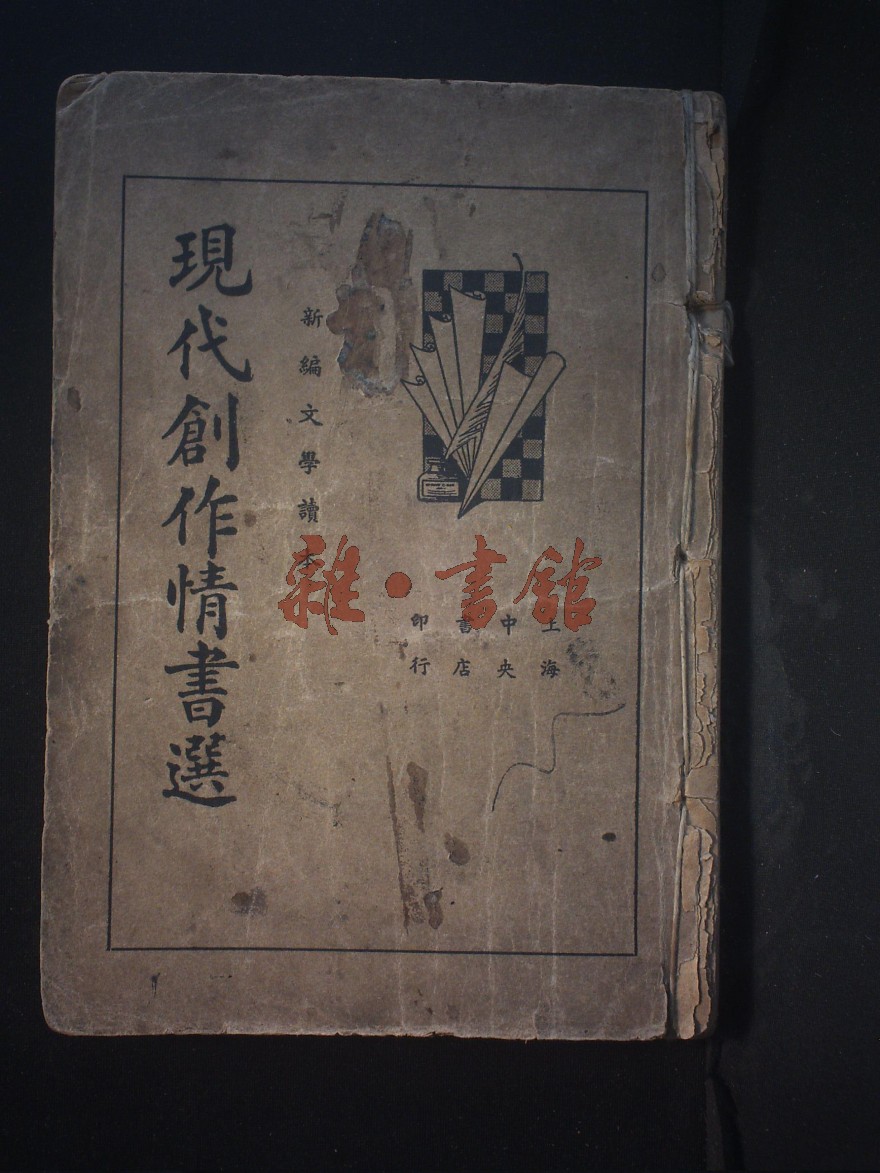 現代創作情書選
新編文學讀本
上海
中央
書店
印行
雜·書館